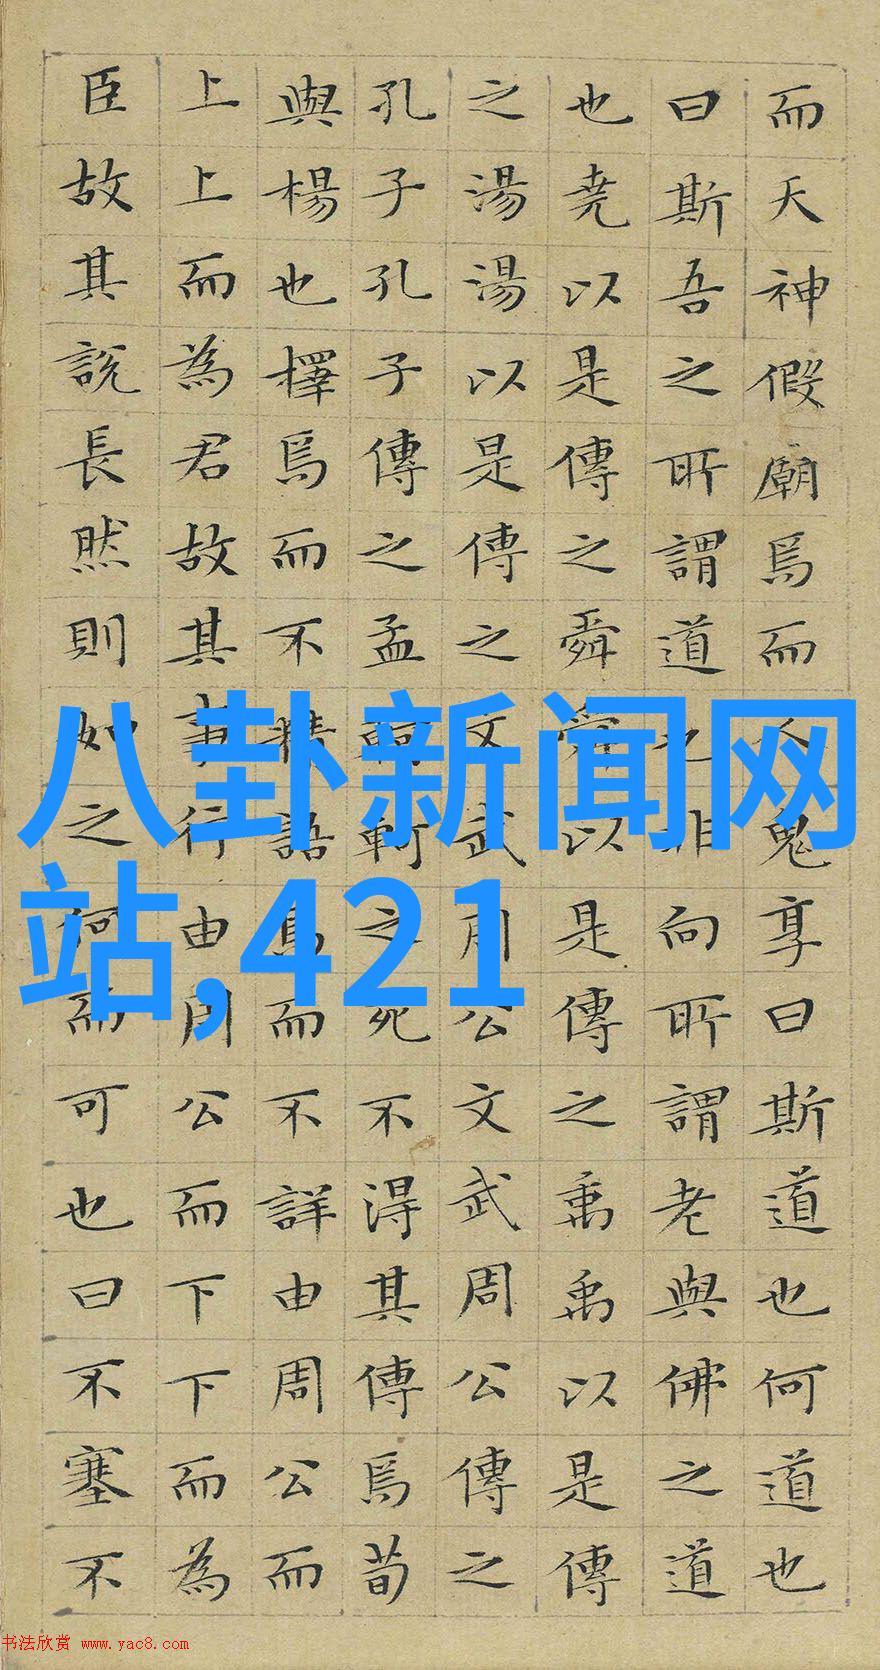 而天神假廟焉而人鬼享曰斯道也何道也
曰斯吾之所謂道也非向所謂老與佛之道
也堯以是傳之舜舜以是傳之禹禹以是傳
之湯湯以是傳之文武周公文武周公傳之
孔子孔子傳之孟軻軻之死不得其傳焉荀
與楊也擇焉而不精語焉而不詳由周公而
上上而為君故其事行由周公而下下而為
臣故其說長然則如之何而可也曰不塞不
八卦新闻网
站,421
书法欣赏 www.yac8.com